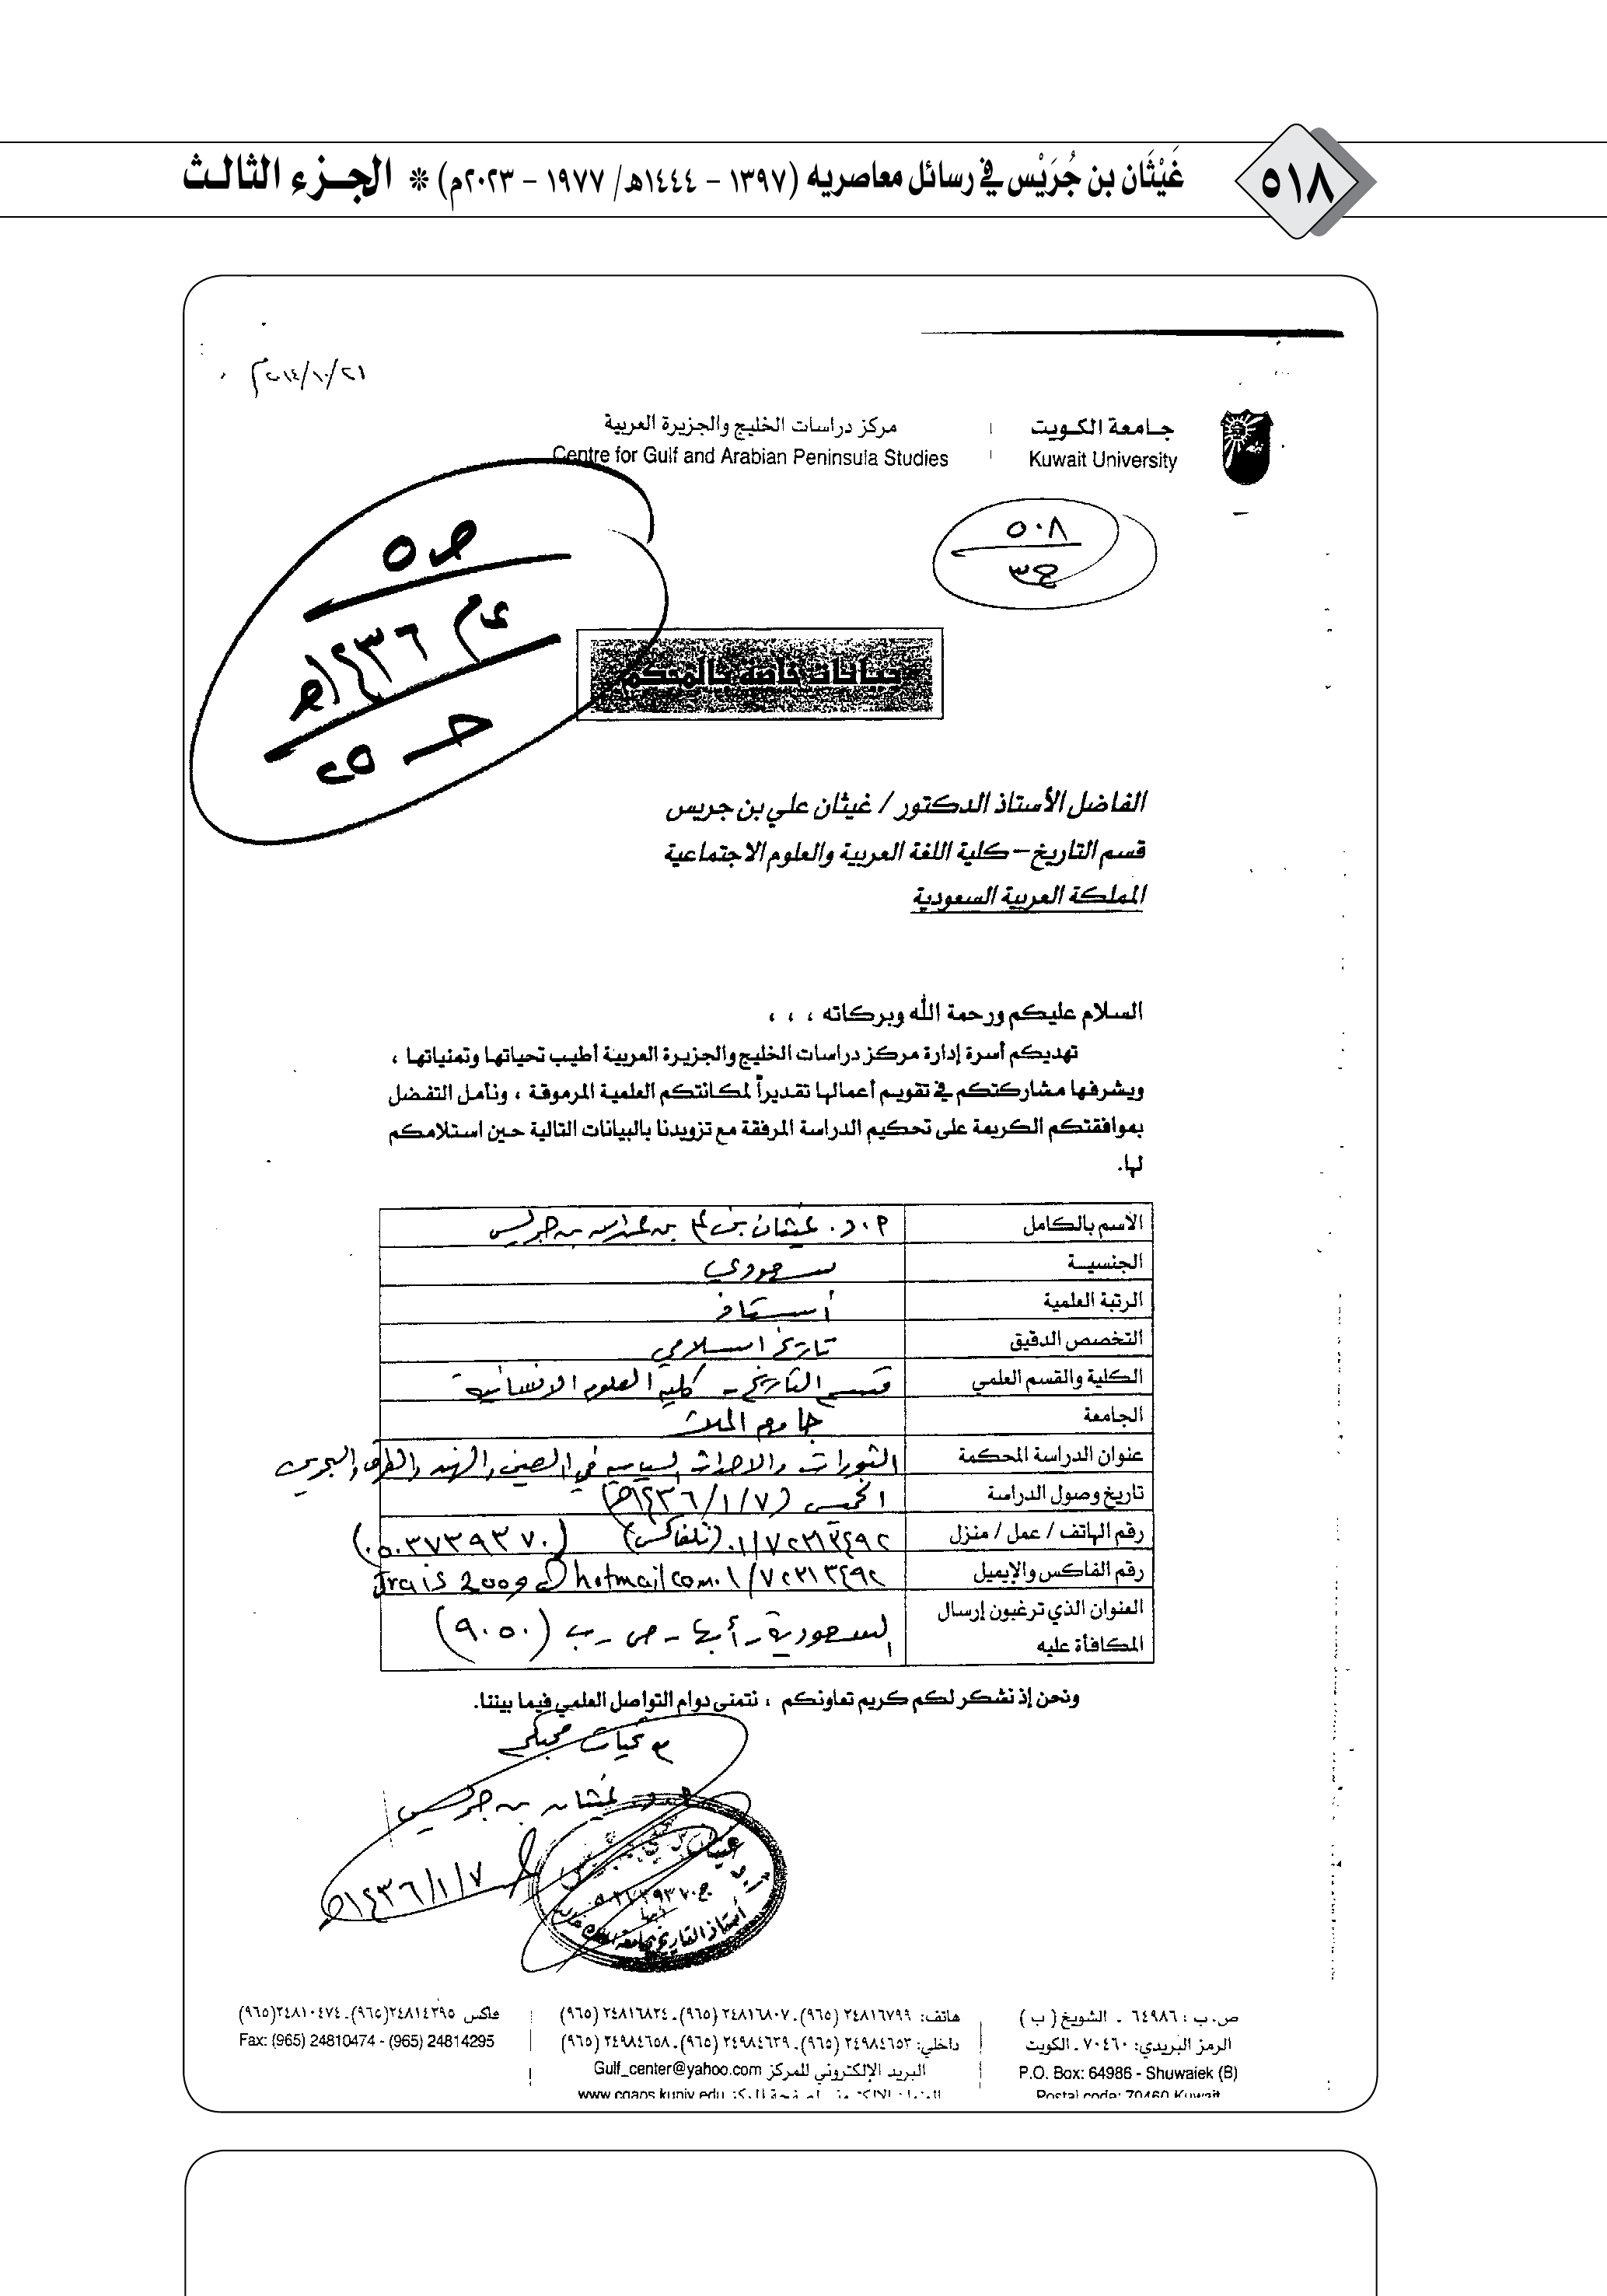 ٥١٨
غَيْثَان بن جُرَيْس في رسائل معاصريه (١٣٩٧ - ١٤٤٤هـ/ ١٩٧٧ - ٢٠٢٣م) * الجزء الثالث
٢٠١٤/١٠/٢١م
جامعة الكويت
Kuwait University
مركز دراسات الخليج والجزيرة العربية
Centre for Gulf and Arabian Peninsula Studies
٥٠٨
ج٣
ص٥
عام ١٤٣٦هـ
ج ٢٥
بيانات خاصة بالمحكم
الفاضل الأستاذ الدكتور / غيثان علي بن جريس
قسم التاريخ – كلية اللغة العربية والعلوم الاجتماعية
المملكة العربية السعودية
السلام عليكم ورحمة الله وبركاته ، ، ،
تهديكم أسرة إدارة مركز دراسات الخليج والجزيرة العربية أطيب تحياتها وتمنياتها ،
ويشرفها مشاركتكم في تقويم أعمالها تقديراً لمكانتكم العلمية المرموقة ، ونأمل التفضل
بموافقتكم الكريمة على تحكيم الدراسة المرفقة مع تزويدنا بالبيانات التالية حين استلامكم
لها.
الاسم بالكامل أ.د. غيثان بن علي بن عبدالله بن جريس
الجنسية سعودي
الرتبة العلمية أستاذ
التخصص الدقيق تاريخ اسلامي
الكلية والقسم العلمي قسم التاريخ - كلية العلوم الانسانية
الجامعة جامعة الملك
عنوان الدراسة المحكمة الثورات والاحداث السياسية في الصين والهند والعراق والبحرين
تاريخ وصول الدراسة الخميس (١٤٣٦/١/٧هـ)
رقم الهاتف / عمل / منزل ٠١/٧٢٣١٣٤٩٢ (تلفاكس) (٠٥٠٣٧٣٩٣٧٠)
رقم الفاكس والإيميل ٠١/٧٢٣١٣٤٩٢ Jrais2009@hotmail.com
العنوان الذي ترغبون إرسال المكافأة عليه السعودية - أبها - ص - ب (٩٠٥٠)
ونحن إذ نشكر لكم كريم تعاونكم ، نتمنى دوام التواصل العلمي فيما بيننا.
مع تحيات محبكم
أ.د. غيثان بن جريس
١٤٣٦/١/٧هـ
أستاذ التاريخ بجامعة الملك خالد
ص.ب : ٦٤٩٨٦ ـ الشويخ (ب)
الرمز البريدي: ٧٠٤٦٠ ـ الكويت
P.O. Box: 64986 - Shuwaiek (B)
Postal code: 70460 Kuwait
هاتف: ٢٤٨١٦٧٩٩ (٩٦٥) ـ ٢٤٨١٦٨٠٧ (٩٦٥) ـ ٢٤٨١٦٨٢٤ (٩٦٥)
داخلي: ٢٤٩٨٤٦٥٣ (٩٦٥) ـ ٢٤٩٨٤٦٣٩ (٩٦٥) ـ ٢٤٩٨٤٦٥٨ (٩٦٥)
البريد الإلكتروني للمركز Gulf_center@yahoo.com
www.cgaps.kuniv.edu
فاكس ٢٤٨١٤٢٩٥(٩٦٥) ـ ٢٤٨١٠٤٧٤(٩٦٥)
Fax: (965) 24810474 - (965) 24814295